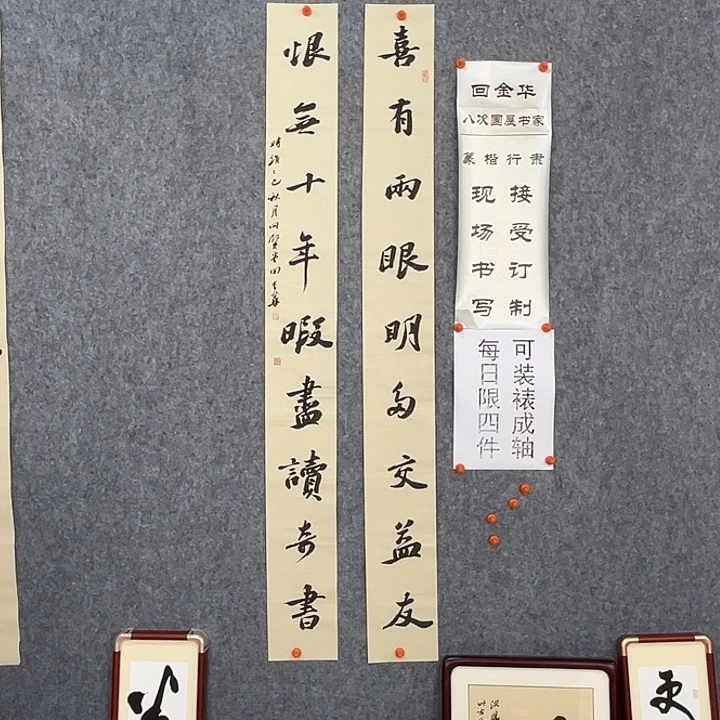 喜有兩眼明多交益友
恨無十年暇盡讀奇書
回金华
八次国展书家
篆楷行隶
接受订制
现场书写
可装裱成轴
每日限四件